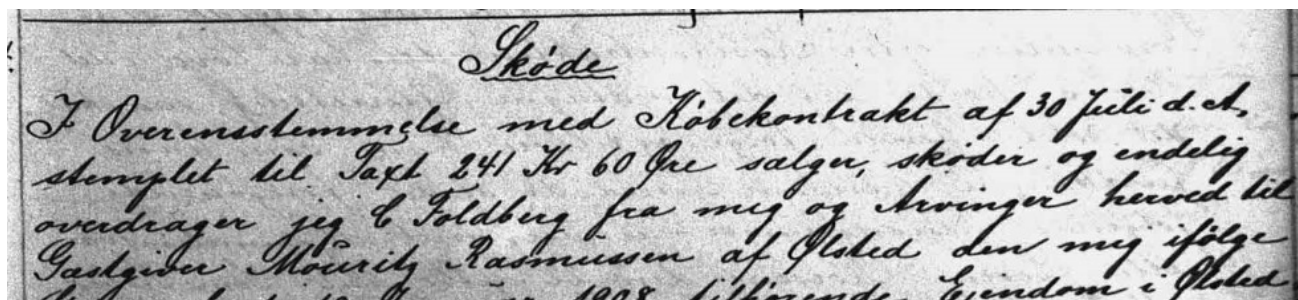 Skøde
I Overensstemmelse med Købekontrakt af 30 Juli d. A.
stemplet til Taxt 241 Kr 60 Øre sælger, skøder og endelig
overdrager jeg C Foldberg fra mig og Arvinger herved til
Gæstgiver Mouritz Rasmussen af Ølsted den mig ifølge
1908 tilhørende Ejendom i Ølsted